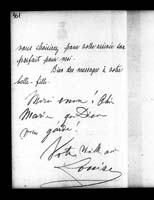 461
nous choisirez pour votre
parfait pour moi.
Bien des messages à votre
belle-fille.
Merci encore! Chère
Marie que Dieu
vous garde!
Votre
Louise